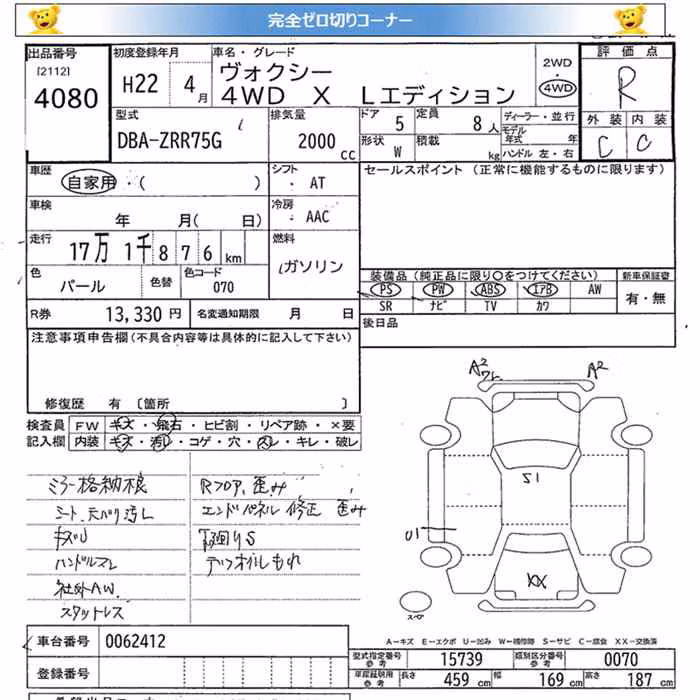 完全ゼロ切りコーナー
出品番号
[2112]
4080
初度登録年月
H22 4月
車名・グレード
ヴォクシー
4WD X Lエディション
2WD
・
4WD
評価点
R
外装 内装
C C
型式
DBA-ZRR75G
排気量
2000 cc
ドア 5
定員 8人
形状 W
積載 kg
ディーラー・並行
モデル年式 年
ハンドル 左・右
車歴
自家用・( )
シフト
・ AT
セールスポイント (正常に機能するものに限ります)
車検
年 月( 日)
冷房
・ AAC
走行
17万 1千 8 7 6 km
燃料
ガソリン
色
パール
色替
色コード
070
装備品 (純正品に限り○をつけてください)
新車保証書
PS PW ABS エアB AW
SR ナビ TV カワ
有・無
R券 13,330 円
名変通知期限 月 日
後日品
注意事項申告欄(不具合内容等は具体的に記入して下さい)
修復歴 有 〔箇所 〕
検査員記入欄
FW キズ・飛石・ヒビ割・リペア跡・×要
内装 キズ・汚レ・コゲ・穴・スレ・キレ・破レ
ミラー格納不良
シート、天バリ汚レ
キズリ
ハンドルスレ
社外AW
スタットレス
Rフロア、歪み
エンドパネル 修正 歪み
下廻りS
デフオイルもれ
A2
A2
S1
U1
XX
スペア
A-キズ E-エクボ U-凹み W-補修跡 S-サビ C-腐食 XX-交換済
車台番号 0062412
登録番号
型式指定番号 参考 15739
類別区分番号 参考 0070
車庫証明用 参考
長さ 459 cm
幅 169 cm
高さ 187 cm